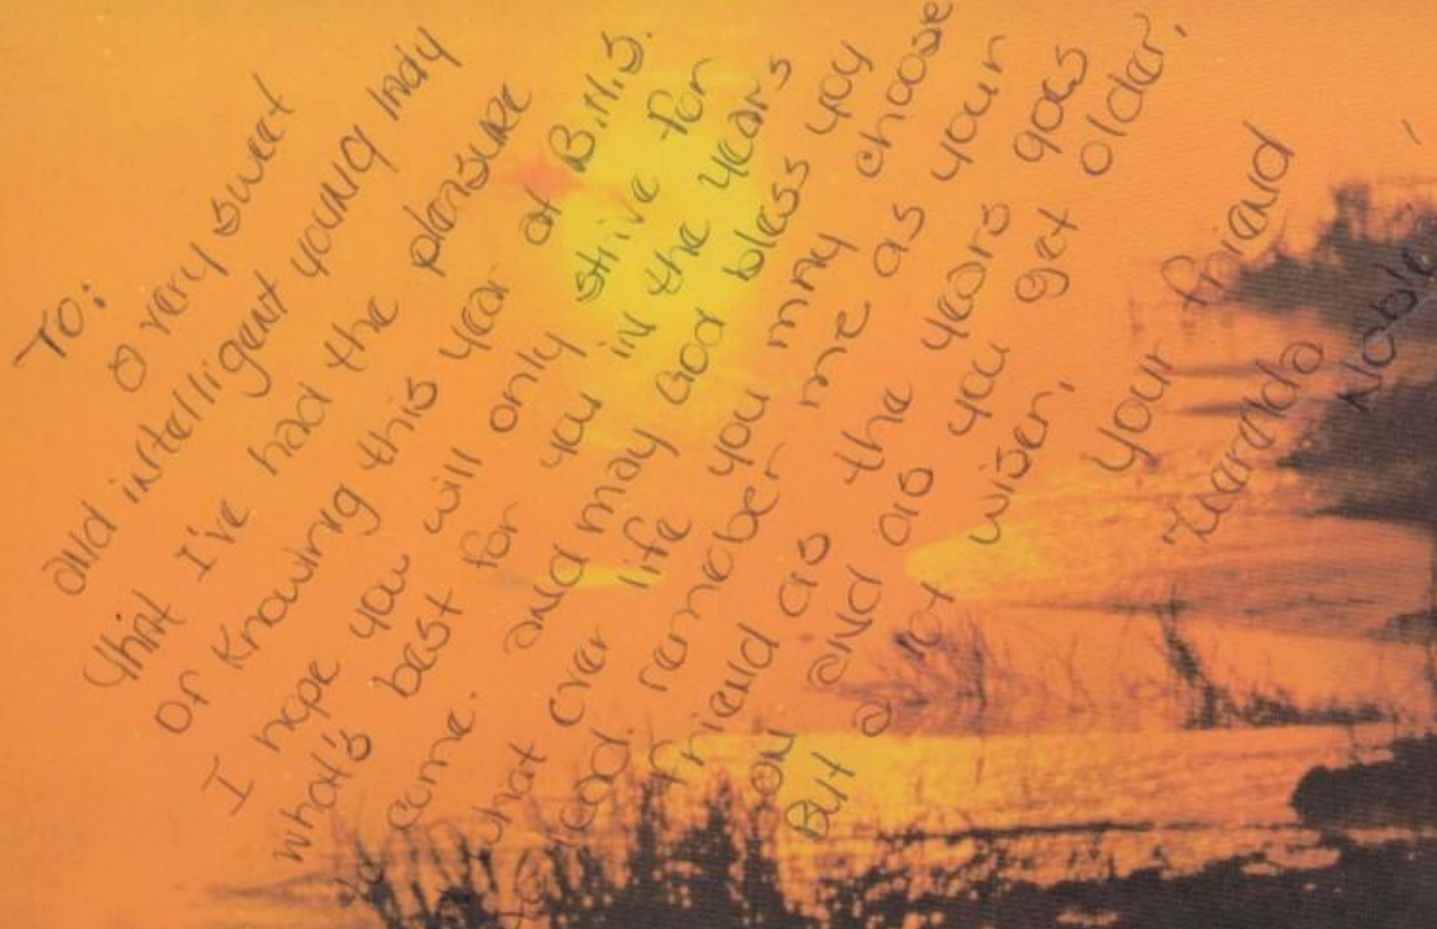 To:
a very sweet
and intelligent young lady
that I've had the pleasure
of knowing this year at B.H.S.
I hope you will only strive for
what's best for you in the years
to come. and may God bless you
what ever life you may choose
to lead. remember me as your
friend as the years goes
on and as you get older,
But a lot wiser,
your friend
Noble